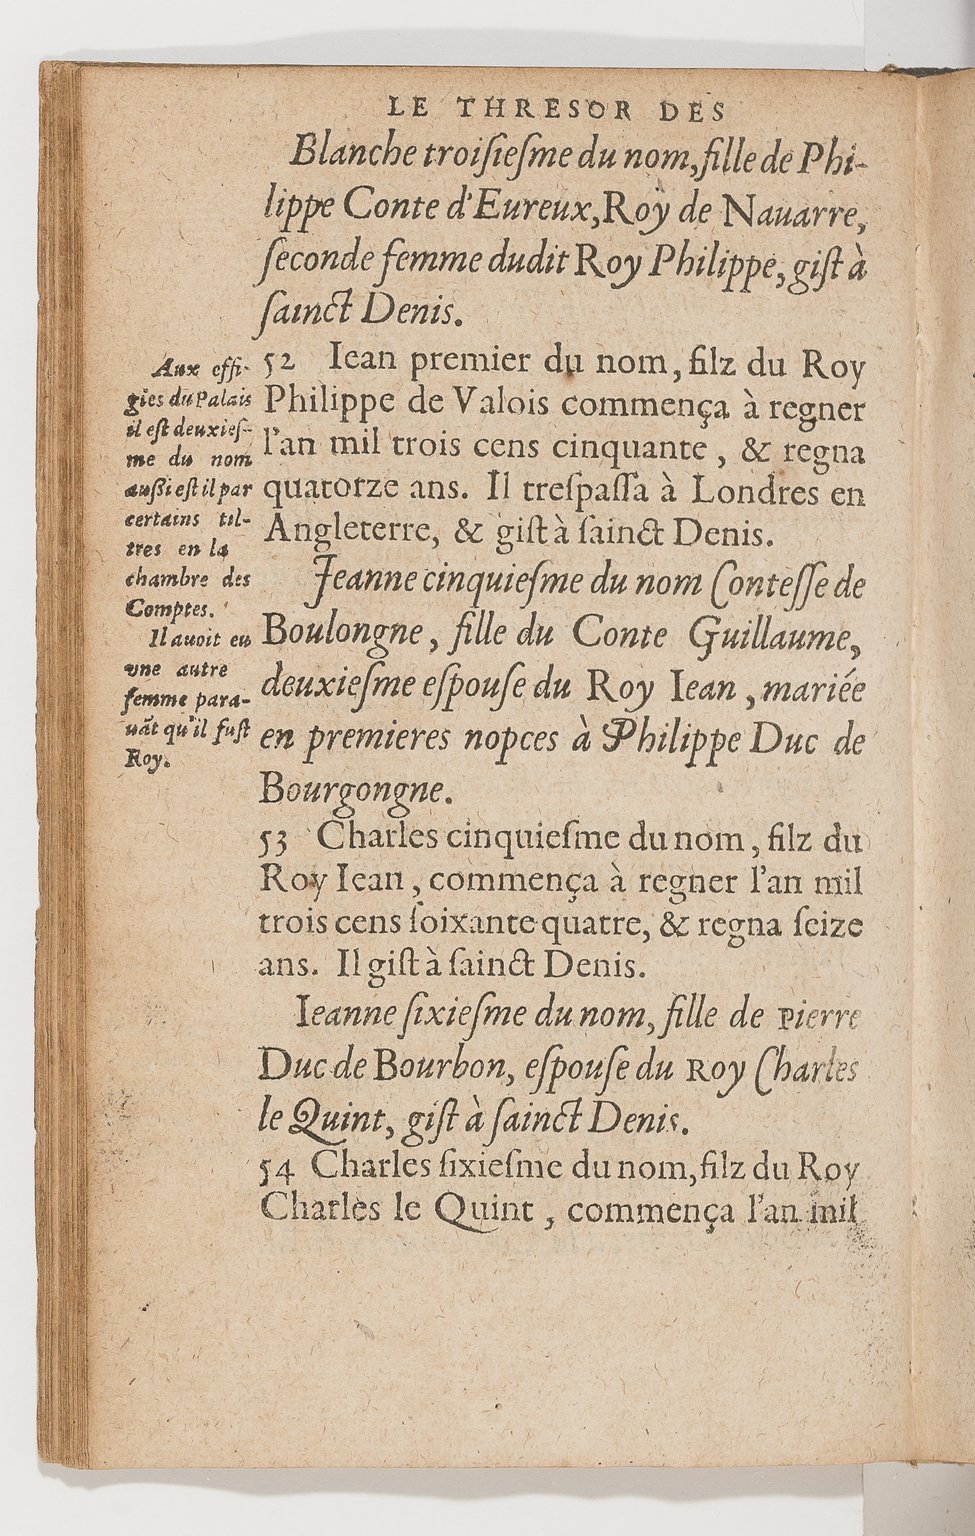 LE THRESOR DES
Blanche troiſieſme du nom, fille de Phi-
lippe Conte d'Eureux, Roy de Nauarre,
ſeconde femme dudit Roy Philippe, giſt à
ſainct Denis.
52 Iean premier du nom, filz du Roy
Philippe de Valois commença à regner
l'an mil trois cens cinquante, & regna
quatorze ans. Il treſpaſſa à Londres en
Angleterre, & giſt à ſainct Denis.
Jeanne cinquieſme du nom Conteſſe de
Boulongne, fille du Conte Guillaume,
deuxieſme eſpouſe du Roy Iean, mariée
en premieres nopces à Philippe Duc de
Bourgongne.
53 Charles cinquieſme du nom, filz du
Roy Iean, commença à regner l'an mil
trois cens ſoixante quatre, & regna ſeize
ans. Il giſt à ſainct Denis.
Ieanne ſixieſme du nom, fille de Pierre
Duc de Bourbon, eſpouſe du Roy Charles
le Quint, giſt à ſainct Denis.
54 Charles ſixieſme du nom, filz du Roy
Charles le Quint, commença l'an mil
Aux effi-
gies du Palais
il eſt deuxieſ-
me du nom
auſſi eſt il par
certains til-
tres en la
chambre des
Comptes.
Il auoit eu
vne autre
femme para-
uāt qu'il fuſt
Roy.